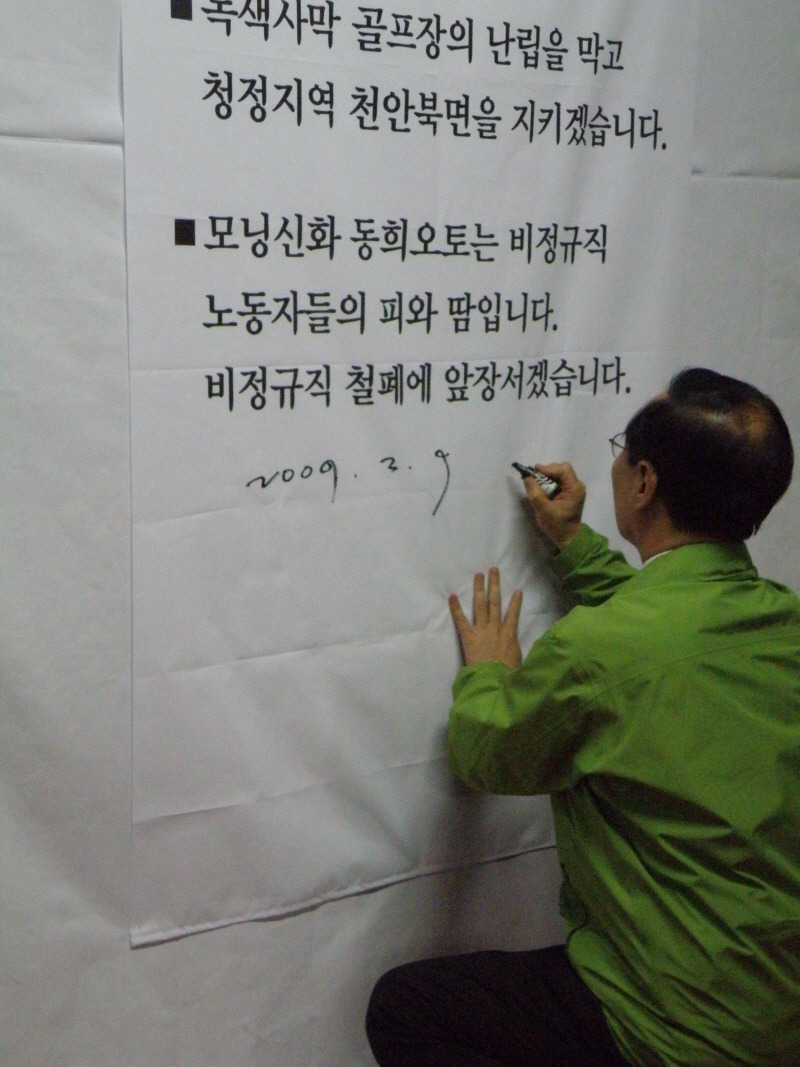 ■ 녹색사막 골프장의 난립을 막고
청정지역 천안북면을 지키겠습니다.
■ 모닝신화 동희오토는 비정규직
노동자들의 피와 땀입니다.
비정규직 철폐에 앞장서겠습니다.
2009. 3. 9